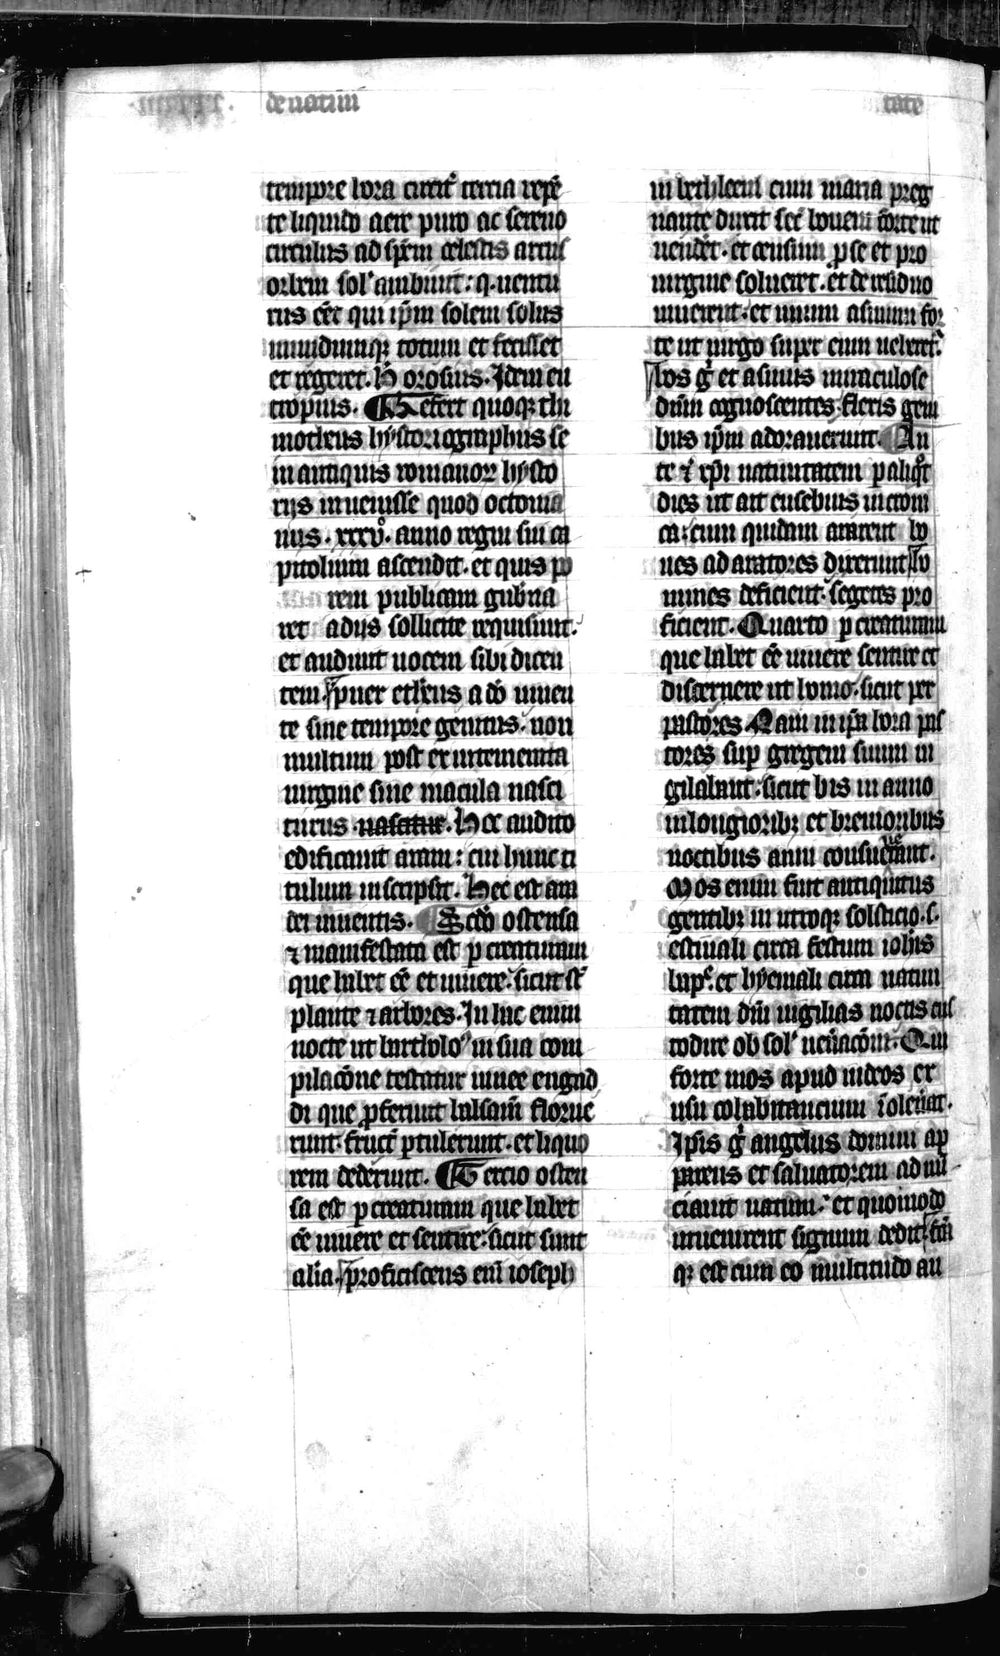 de natiui
tate
tempore hora circit᷒ tercia repē
te liquido aere puro ac sereno
circulus ad spēm celestis arcus
orbem sol᷒ ambiuit: q. uentu
rus eēt qui ip̄m solem solus
mundumqꝫ totum et fecisset
et regeret. H orosius. Idem eu
tropius. Refert quoqꝫ thi
motheus hystoriographus se
in antiquis romanoꝝ hysto
rijs inuenisse quod octouia
nus . xxxvͦ. anno regni sui ca
pitolium ascendit. et quis po
rem publicam gub̄na
ret adijs sollicite requisiuit.
et audiuit uocem sibi dicen
tem. puer eth̄eus a dō uiuen
te sine tempore genitus. non
multum post ex intemerata
uirgine sine macula nasci
turus . nascatur. Hoc audito
edificauit aram: cui hunc ti
tulum inscripsit. Hec est ara
dei uiuentis. Scd̄o ostensa
⁊ manifestata est ꝑ creaturam
que habet eē et uiuere. sicut s̄t
plante ⁊ arbores. In hac enim
nocte ut bartholoꝰ in sua com
pilacōne testatur uinee engad
di que ꝓferunt balsam̄ florue
runt. fruct᷒ ꝓtulerunt. et liquo
rem dederunt. Tercio osten
sa est ꝑ creaturam que habet
eē uiuere et sentire. sicut sunt
alia. proficiscens enī ioseph
in bethleem cum maria preg
nante duxit sec̄ bouem forte ut
uendēt. et censum ꝓ se et pro
uirgine solueret. et de residuo
uiuerent. et unum asinum for
te ut uirgo super eum uehert᷒.
bos g̊ et asinus miraculose
dn̄m cognoscentes. flexis geni
bus ip̄m adorauerunt. An
te ⁊ xp̄i natiuitatem ꝑ aliq̊t
dies ut ait eusebius in croni
ca: cum quidam ararent bo
ues ad aratores dixerunt ho
mines deficient. segetes pro
ficient. Quarto ꝑ creaturam
que habet eē uiuere sentire et
discernere ut homo. sicut per
pastores. Nam in ip̄a hora pas
tores suꝑ gregem suum ui
gilabant. sicut bis in anno
in longioribꝫ et breuioribus
noctibus anni consueuerant.
Mos enim fuit antiquitus
gentibꝫ in utroqꝫ solsticio. s.
estiuali circa festum ioh̄is
bapͭ. et hyemali circa natiui
tatem dn̄i uigilias noctis cus
todire ob sol᷒ uen̄acōm. Qui
forte mos apud iudeos ex
usu cohabitancium īoleu̇at.
Ipsis g̊ angelus domini ap
parens et saluatorem ad nū
ciauit natum. et quomodo
inuenirent signum dedit. fc̄a
qꝫ est cum eo multitudo an